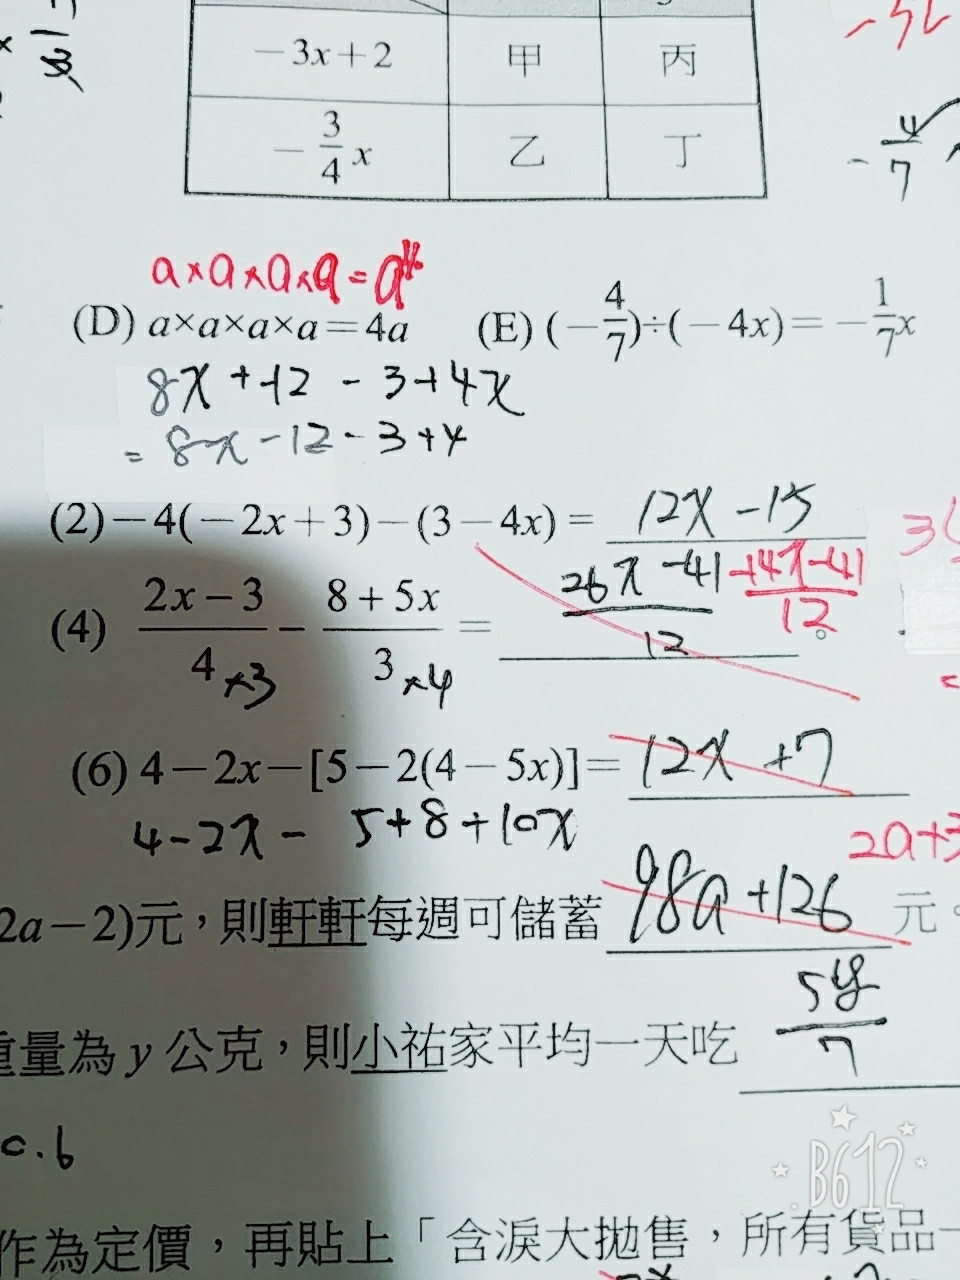 -3x+2 甲 丙
-3/4 x 乙 丁
-4/7
a×a×a×a=a⁴
(D) a×a×a×a=4a (E) (-4/7)÷(-4x)=-1/7 x
8x+-12-3+4x
=8x-12-3+4
(2) -4(-2x+3)-(3-4x)= 12x-15
(4) (2x-3)/4 ×3 - (8+5x)/3 ×4 = (26x-41)/12 (-14x-41)/12
(6) 4-2x-[5-2(4-5x)]= 12x+7
4-2x- 5+8+10x
2a+3
2a-2)元,則軒軒每週可儲蓄 98a+126 元。
重量為 y 公克,則小祐家平均一天吃 5y/7
0.6
B612
作為定價,再貼上「含淚大拋售,所有貨品一